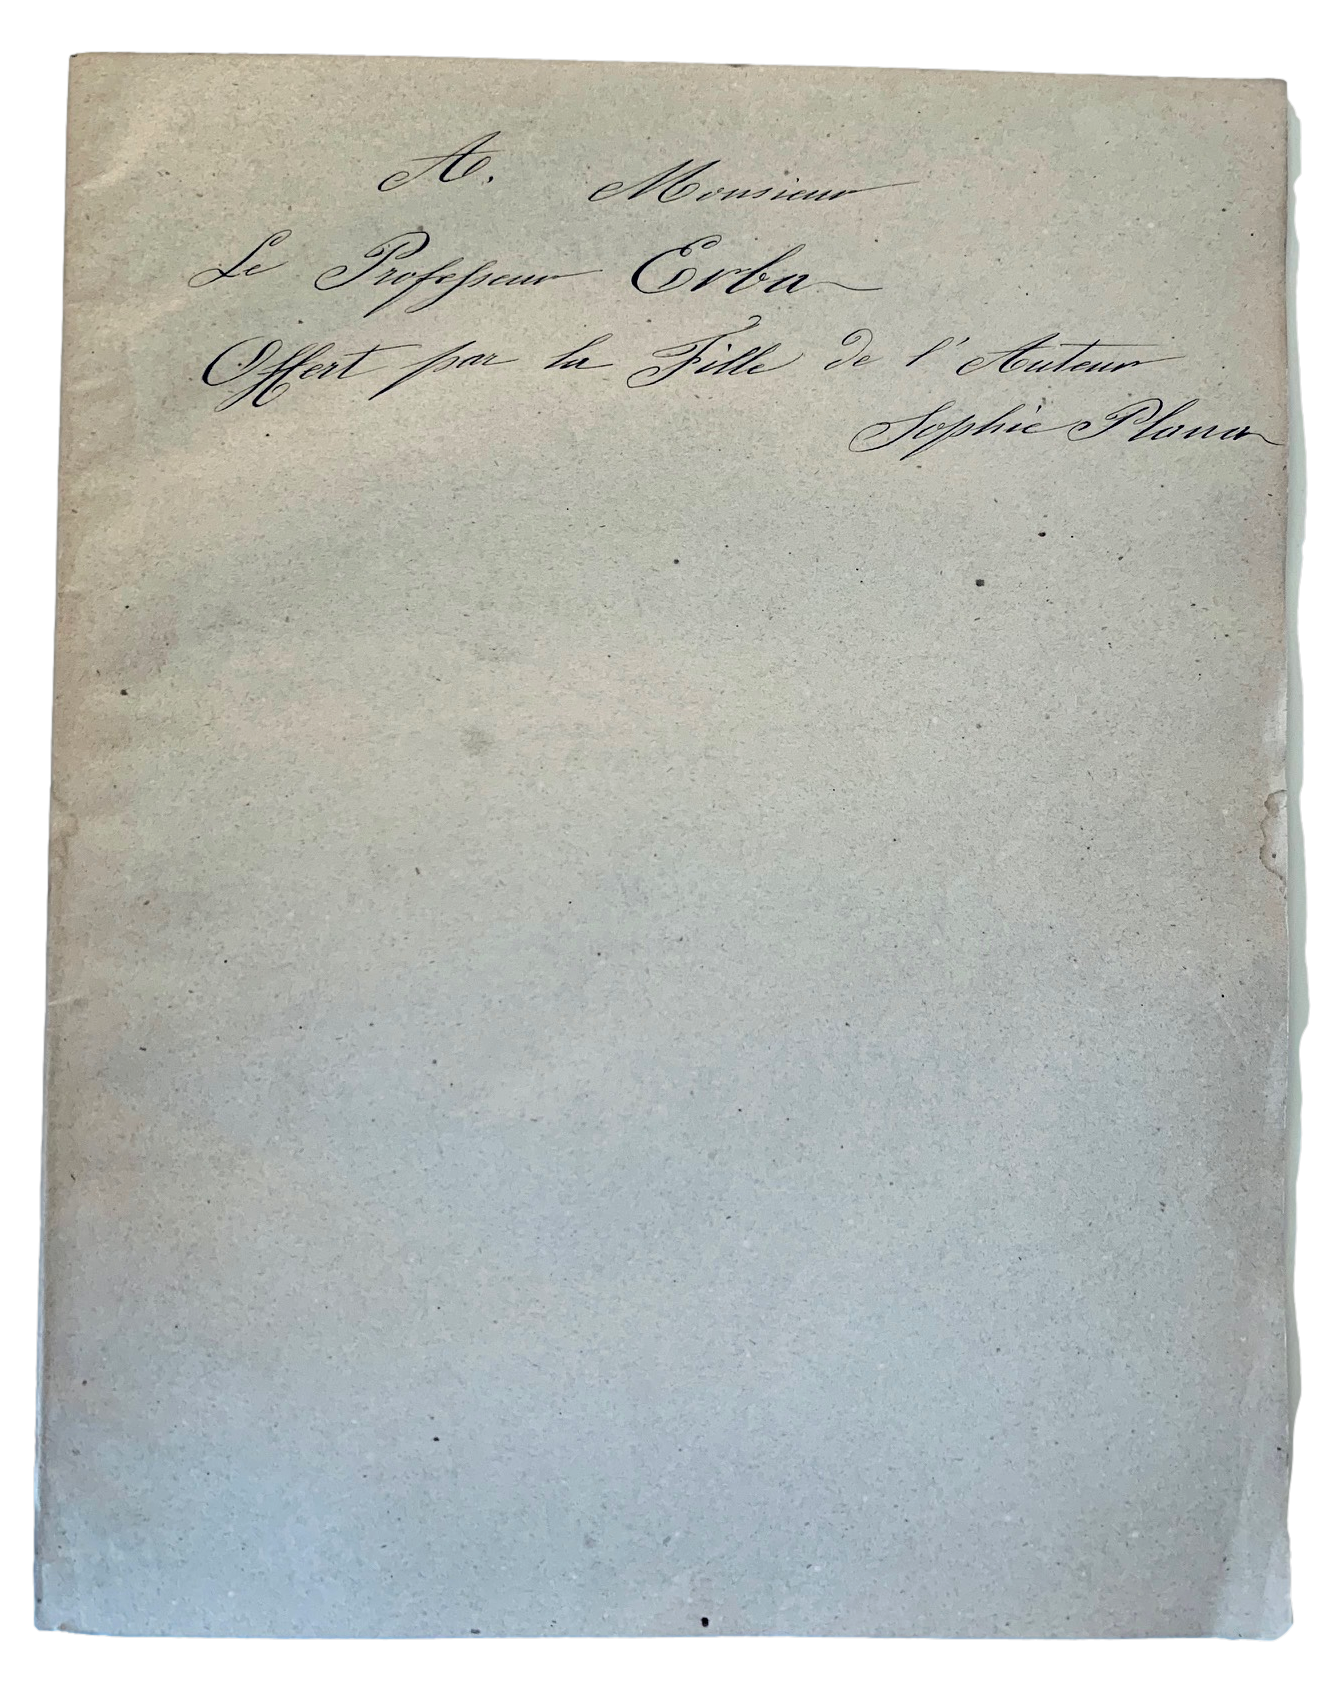 A. Monsieur
Le Professeur Erba
Offert par la Fille de l'Auteur
Sophie Plana